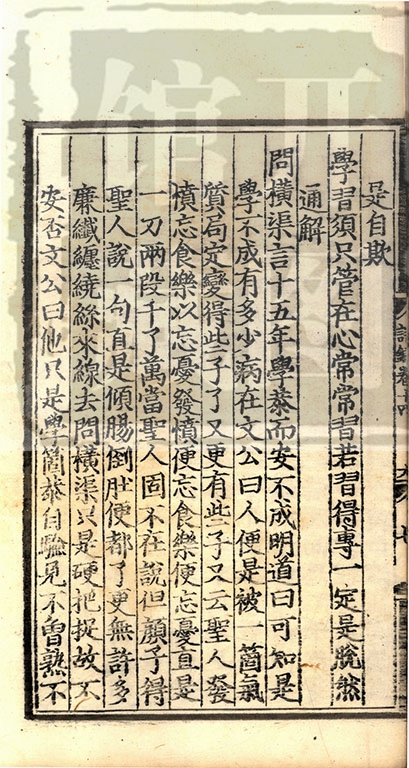 是自欺
學者須只管在心常常習若習得專一定是脫然
通解
問橫渠言十五年學恭而安不成明道曰可知是
學不成有多少病在文公曰人便是被一箇氣
質局定變得些子了又更有些子又云聖人發
憤忘食樂以忘憂發憤便忘食樂便忘憂直是
一刀兩段千了萬當聖人固不在說但顏子得
聖人說一句直是傾腸倒肚便都了更無許多
廉纖纏繞絲來線去問橫渠只是硬把捉故不
安否文公曰他只是學箇恭自驗見不曾熟不